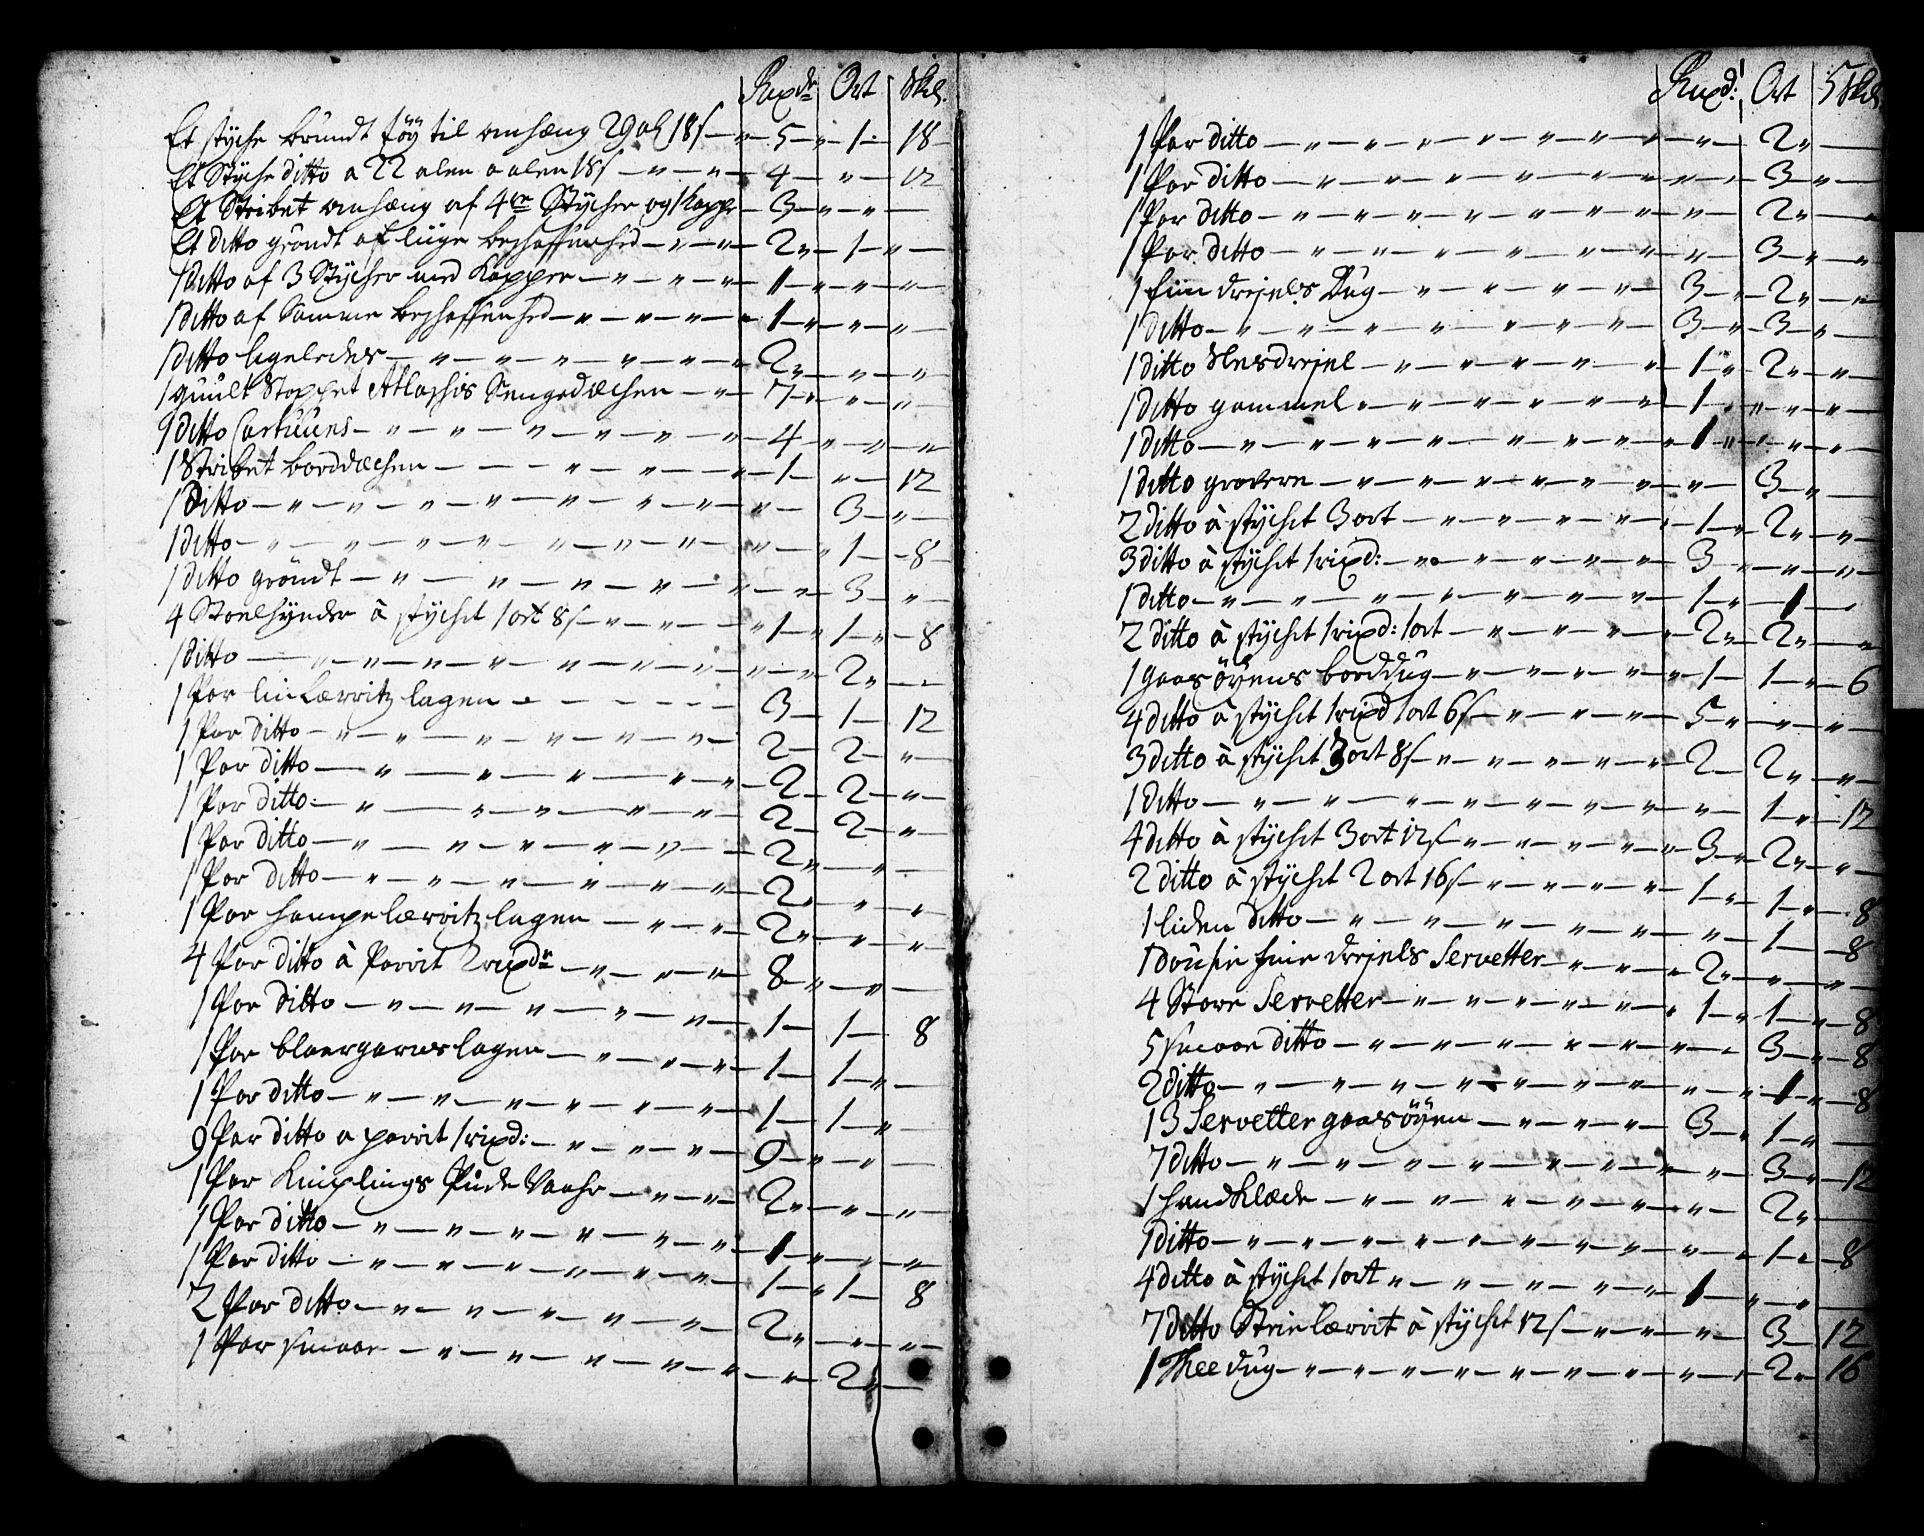 Rixdr Ort Skil.
Et stÿche brundt tøÿ til omhæng 29 al 18s — 5 „ 1 — 18
Et Stÿche ditto a 22 alen a alen 18s — 4 — „ — 12
Et Stribet omhæng af 4re Stÿcher og 1 kappe — 3 „ — „ —
Et ditto grøndt af liige beschaffenhed — 2 „ — 1 — „ —
1 ditto af 3 Stÿcher med Kapper — 1 — „ — „
1 ditto af Samme beschaffenhed — 1 — „ — „
1 ditto ligeledes — 2 „ — „ — „
1 guult Stoppet Atlaschis Sengedæchen — 7 — „ — „
1 ditto Cartuuns — 4 „ — „ — „
1 Stribet borddæchen — 1 — „ — 12
1 Ditto — „ — 3 — „ —
1 ditto — „ — 1 — 8
1 ditto grøndt — „ — 3 — „ —
4 Stoelhÿnder à stÿchet 1 ort 8s — 1 — 1 „ — 8
1 ditto — „ — 2 „ —
1 Par lin Lærritz lagen — 3 — 1 — 12
1 Par ditto — 2 — 2 — „
1 Par ditto — 2 — 2 — „ —
1 Par ditto — 2 — 2 — „ —
1 Par ditto — 2 „ — „ —
1 Par ditto — 2 „ — „ — „
1 Par hampelærritz lagen — 2 „ — „ — „
4 Par ditto à Parrit 2 rixdr — 8 — „ — „ —
1 Par ditto — 1 — 1 — 8
1 Par blaergarns lagen — 1 — 1 — „ —
1 Par ditto — 1 — 1 — „
9 Par ditto a parrit 1 rixd: — 9 — „ — „ —
1 Par Kniplings Pude Vaahr — 2 „ — „ — „
1 Par ditto — 1 — „ — „ — „
1 Par ditto — 1 — „ 1 — 8
2 Par ditto — 2 „ — „ — „
1 Par smaae — „ — 2 „ —
Rixd: Ort 5 Skil.
1 Par ditto — „ — 2 „ —
1 Par ditto — „ — 3 — „ —
1 Par ditto — „ — 2 „ — „
1 Par ditto — „ — 3 — „ — „
1 fiin drejels Dug — 3 — „ 2 „ — „
1 ditto — 3 — „ 3 — „ —
1 ditto Slesdrejel — 1 „ 2 „ — „
1 ditto gammel — 1 — „ — „ — „
1 ditto — 1 „ — „ — „
1 ditto grovere — „ — 3 — „ —
2 ditto à stÿchet 3 ort — 1 — „ 2 „ — „
3 ditto à stÿchet 1 rixd: — 3 „ — „ — „
1 ditto — 1 — „ 1 —
2 ditto à stÿchet 1 rixd: 1 ort — 2 „ — 2 „ — „
1 gaasøÿens borddug — 1 — 1 — „ — 6
4 ditto à stÿchet 1 rixd 1 ort 6s — 5 — „ — „ — „
3 ditto à stÿchet 3 ort 8s — 2 — 2 „ — „
1 ditto — „ — 1 — „ — 12
4 ditto à stÿchet 3 ort 12s — 3 — „ 2 „ — „
2 ditto à stÿchet 2 ort 16s — 1 — „ 1 — „ — 8
1 liden ditto — „ — 1 — 8
1 dousin fiin drejels Servetter — 2 „ — „ — „
4 Store Servetter — 1 — „ 1 — „ — 8
5 smaae ditto — „ — 3 — „ — 8
2 ditto — „ — 1 — „ — 8
13 Servetter gaasøÿen — 3 — „ 1 — „ —
7 ditto — „ — 3 — „ — 12
1 handklæde — „ — 2 „ —
1 ditto — „ — 1 — „ — 8
4 ditto à stÿchet 1 ort — 1 — „ — „ —
7 ditto Strie lærrit à stÿchet 12s — „ — 3 — 12
1 Thee dug — „ — 2 „ — 16